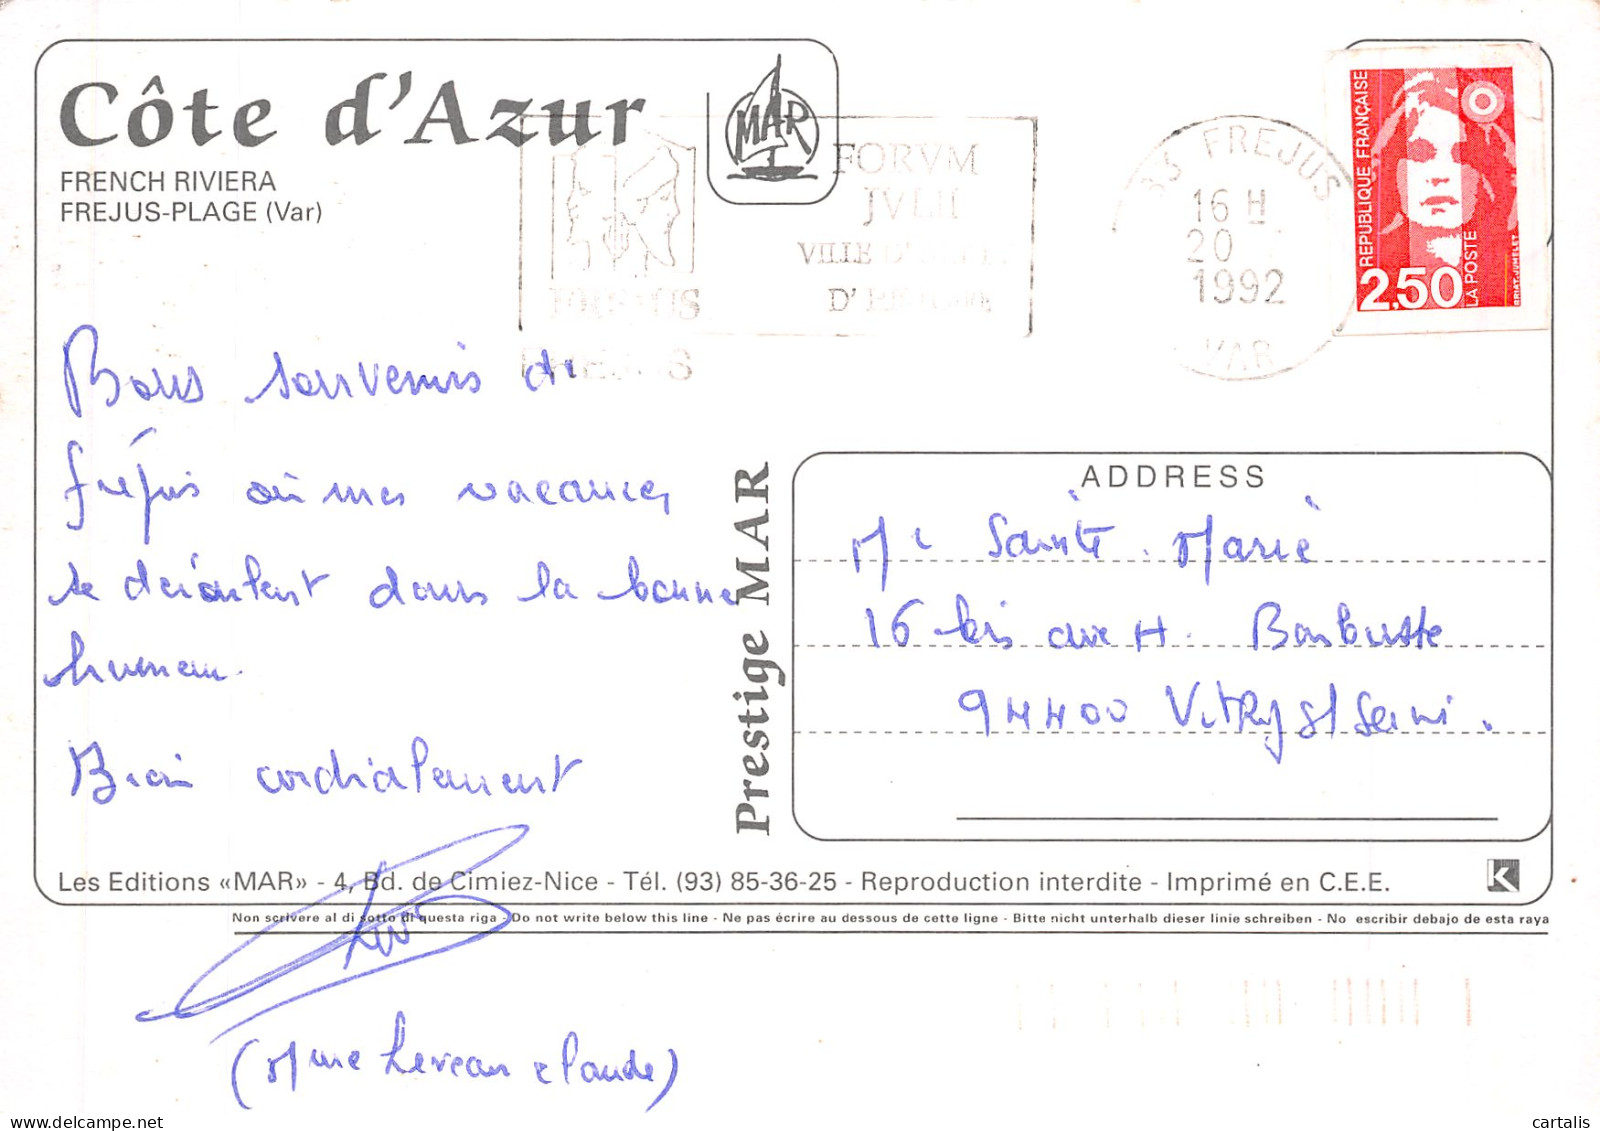 Côte d'Azur
FRENCH RIVIERA
FREJUS-PLAGE (Var)
MAR
FORVM
JVLII
VILLE D'
D' HISTOIRE
FREJUS
83 FREJUS
16 H
20
1992
VAR
REPUBLIQUE FRANÇAISE
2,50
LA POSTE
BRIAT-JUMELET
Bons souvenirs de
fréjus où mes vacances
se déroulent dans la bonne
humeur.
Bien cordialement
Prestige MAR
ADDRESS
Mr Sainte Marie
16 bis ave H. Barbusse
94400 Vitry s/Seine.
Les Editions «MAR» - 4, Bd. de Cimiez-Nice - Tél. (93) 85-36-25 - Reproduction interdite - Imprimé en C.E.E.
K
Non scrivere al di sotto di questa riga - Do not write below this line - Ne pas écrire au dessous de cette ligne - Bitte nicht unterhalb dieser linie schreiben - No escribir debajo de esta raya
(Mme Leveau Claude)
cartalis